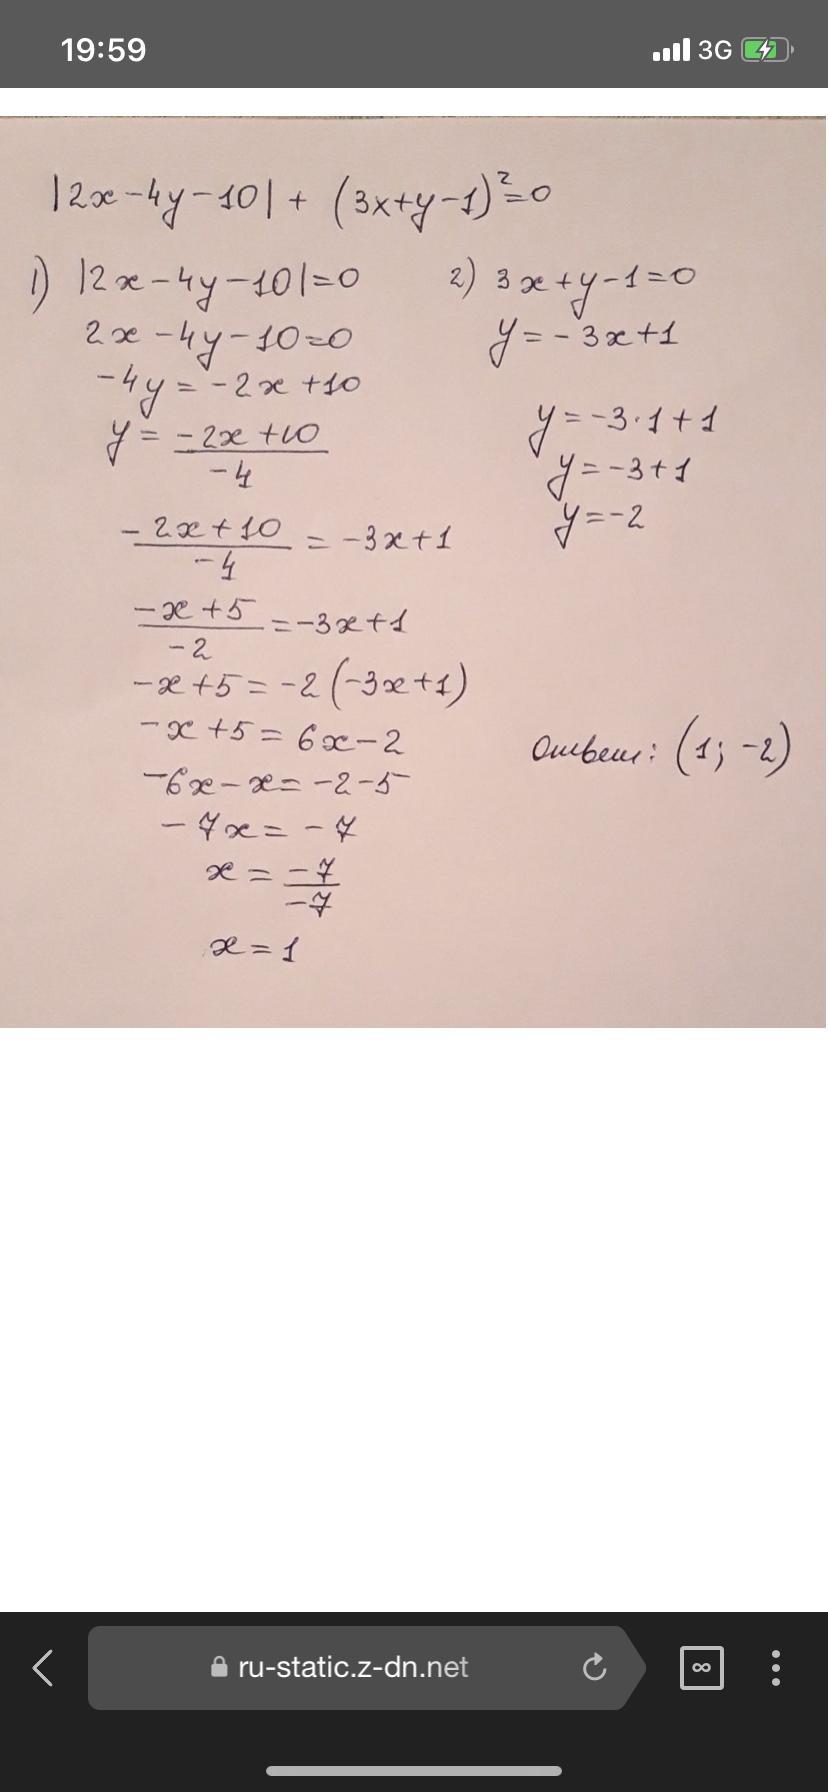 19:59
3G
|2x-4y-10| + (3x+y-1)²=0
1) |2x-4y-10|=0
2x-4y-10=0
-4y=-2x+10
y=\frac{-2x+10}{-4}
\frac{-2x+10}{-4}=-3x+1
\frac{-x+5}{-2}=-3x+1
-x+5=-2(-3x+1)
-x+5=6x-2
-6x-x=-2-5
-7x=-7
x=\frac{-7}{-7}
x=1
2) 3x+y-1=0
y=-3x+1
y=-3·1+1
y=-3+1
y=-2
Ответ: (1; -2)
ru-static.z-dn.net
∞